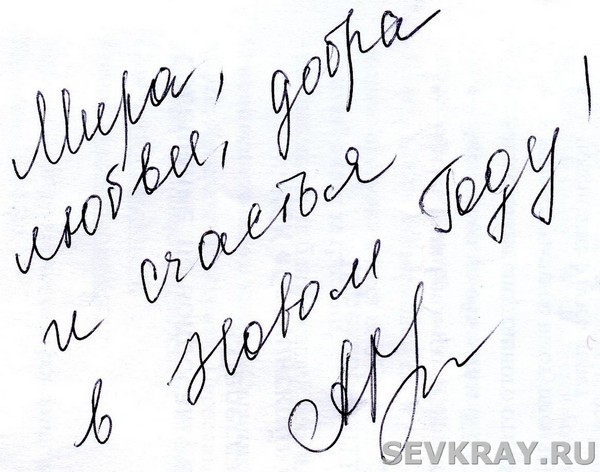 Мира,
любви, добра
и счастья
в Новом Году!
SEVKRAY.RU